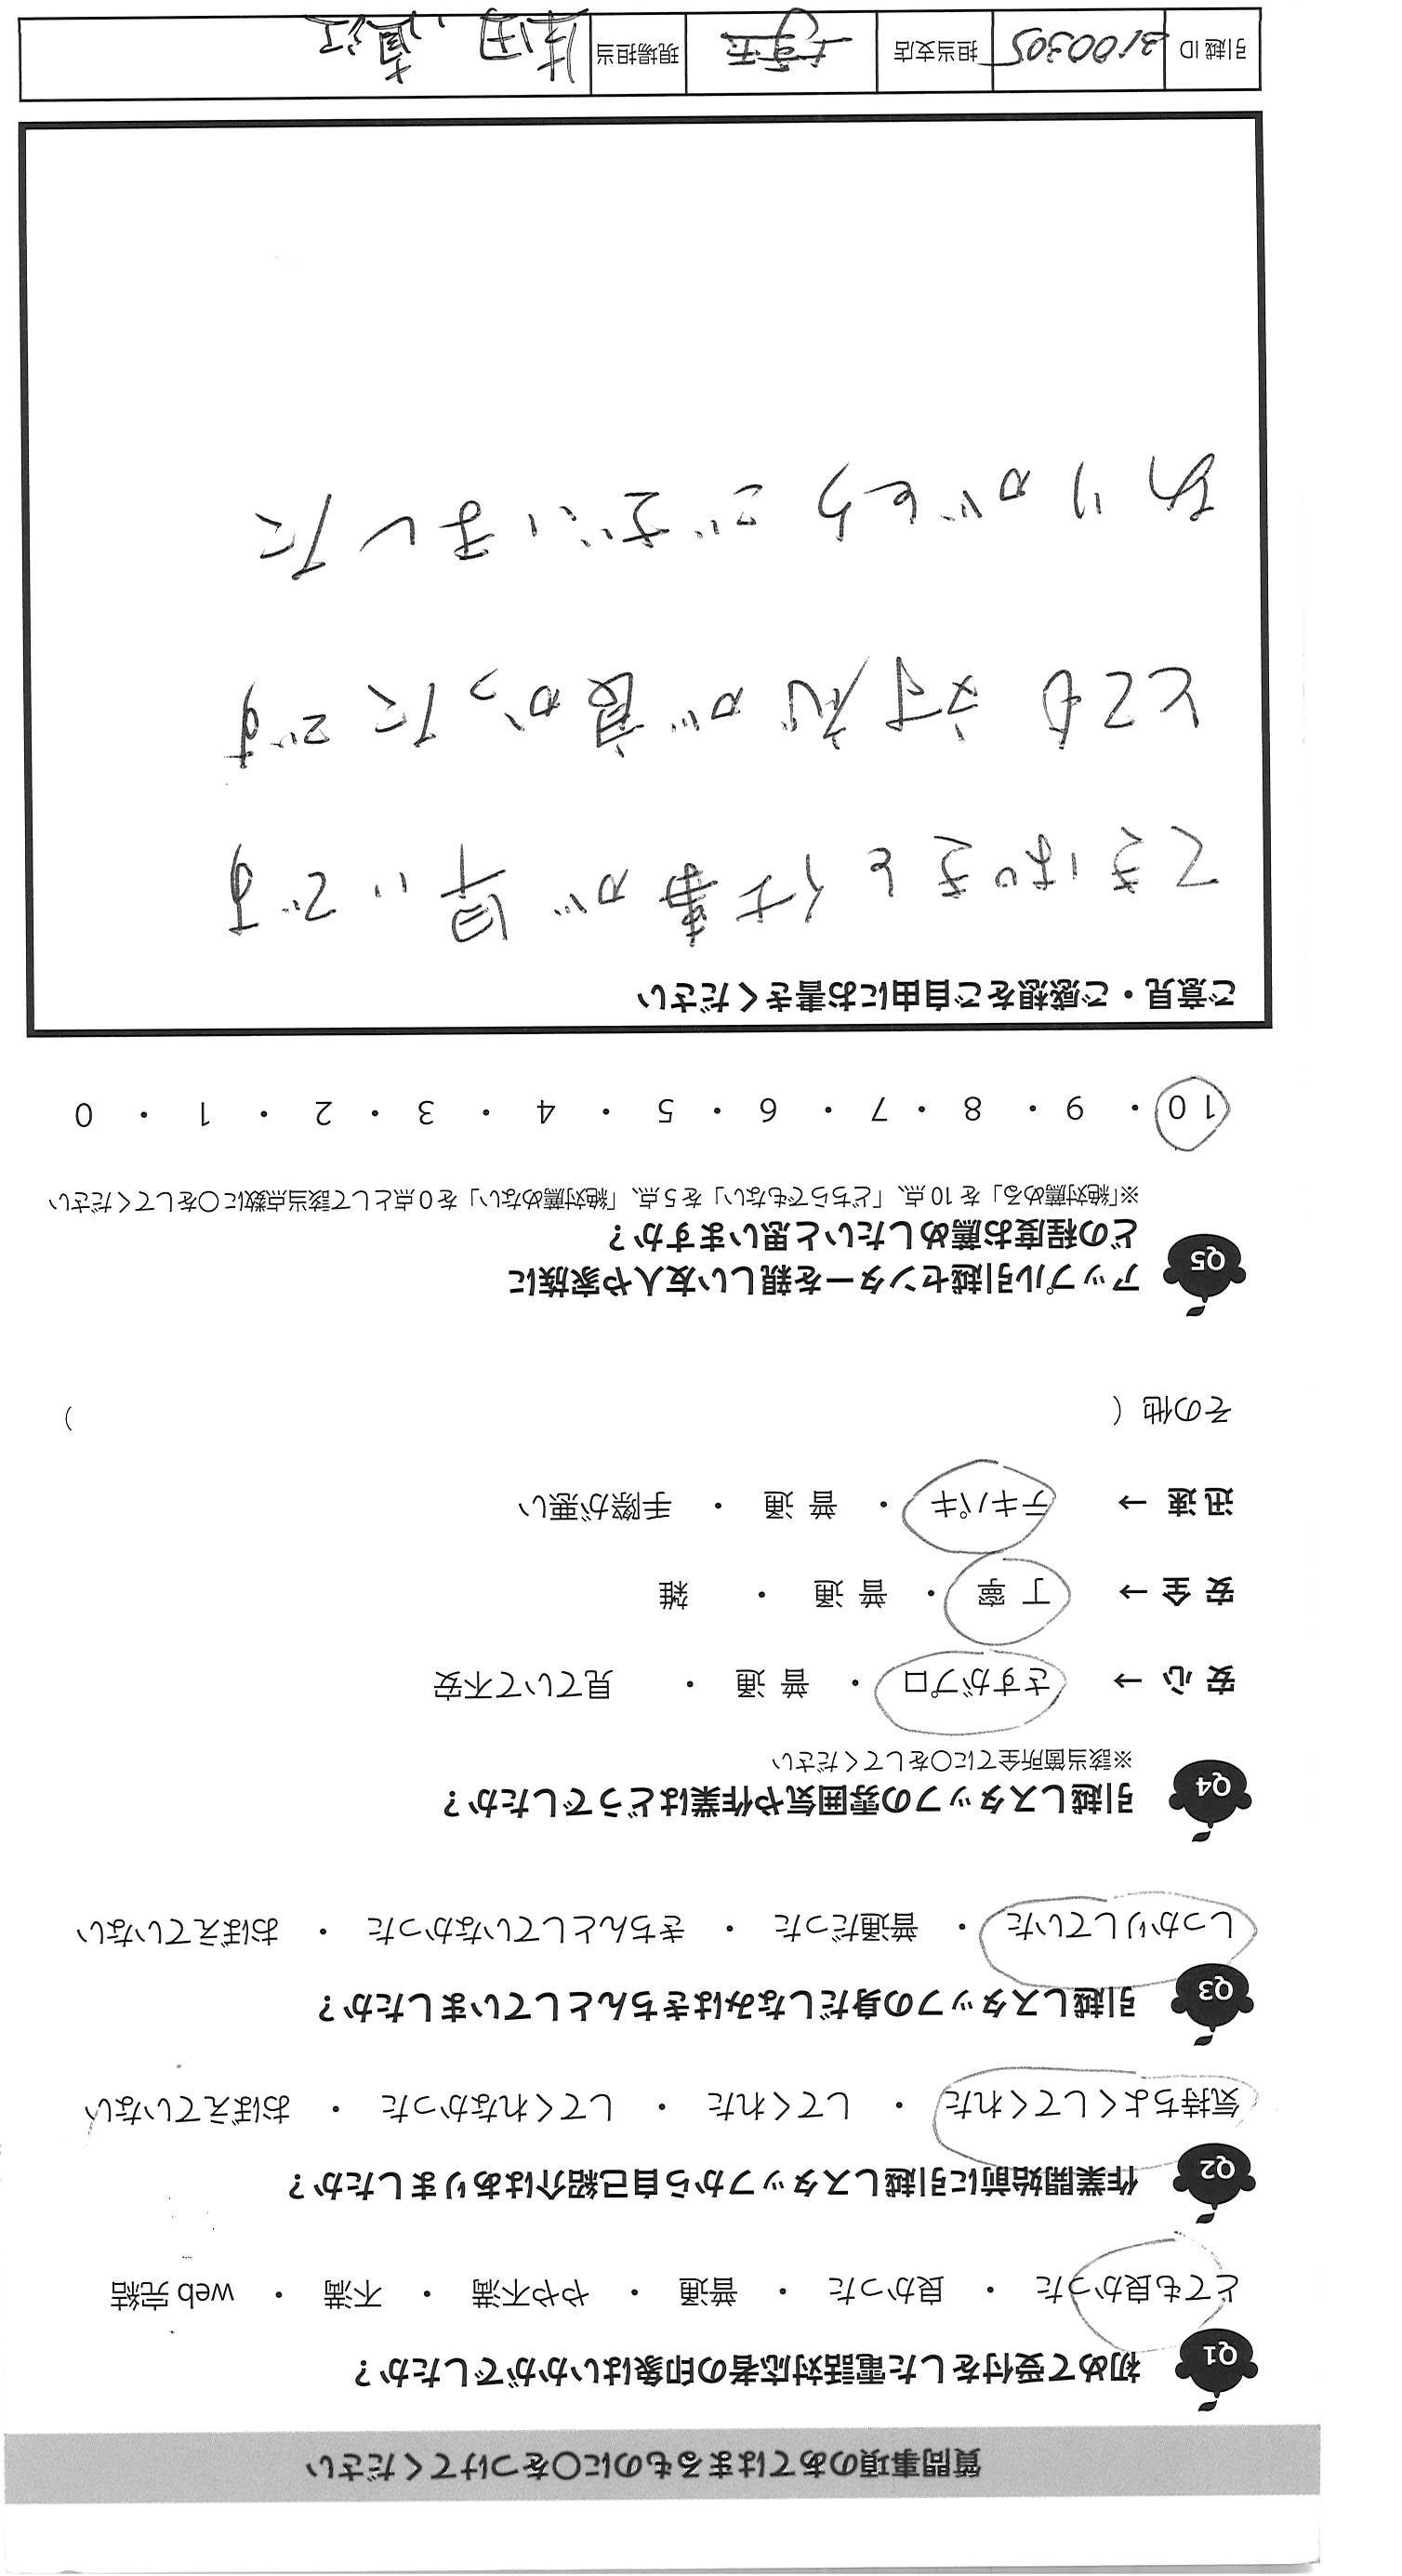 質問事項のあてはまるものに〇をつけてください
Q1 初めて受付をした電話対応者の印象はいかがでしたか?
とても良かった ・ 良かった ・ 普通 ・ やや不満 ・ 不満 ・ web 完結
Q2 作業開始前に引越しスタッフから自己紹介はありましたか?
気持ちよくしてくれた ・ してくれた ・ してくれなかった ・ おぼえていない
Q3 引越しスタッフの身だしなみはきちんとしていましたか?
しっかりしていた ・ 普通だった ・ きちんとしていなかった ・ おぼえていない
Q4 引越しスタッフの雰囲気や作業はどうでしたか?
※該当箇所全てに〇をしてください
安 心 → さすがプロ ・ 普 通 ・ 見ていて不安
安 全 → 丁 寧 ・ 普 通 ・ 雑
迅 速 → テキパキ ・ 普 通 ・ 手際が悪い
その他 ( )
Q5 アップル引越センターを親しい友人や家族に
どの程度お薦めしたいと思いますか?
※「絶対薦める」を 10 点、「どちらでもない」を 5 点、「絶対薦めない」を 0 点として該当点数に〇をしてください
10 ・ 9 ・ 8 ・ 7 ・ 6 ・ 5 ・ 4 ・ 3 ・ 2 ・ 1 ・ 0
ご意見・ご感想をご自由にお書きください
てきぱきと仕事が早いです
とても対応が良かったです
ありがとうございました
引越 ID 3100305 担当支店 現場担当